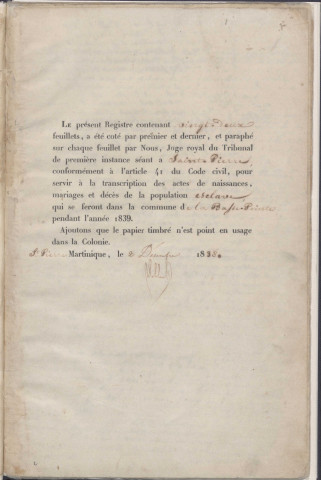 LE présent Registre contenant vingt Deux
feuillets, a été coté par premier et dernier, et paraphé
sur chaque feuillet par Nous, Juge royal du Tribunal
de première instance séant a Sainte Pierre
conformément à l'article 41 du Code civil, pour
servir à la transcription des actes de naissances,
mariages et décès de la population esclave
qui se feront dans la commune de la Basse Pointe
pendant l'année 1839.
Ajoutons que le papier timbré n'est point en usage
dans la Colonie.
St Pierre Martinique, le Décembre 1838.